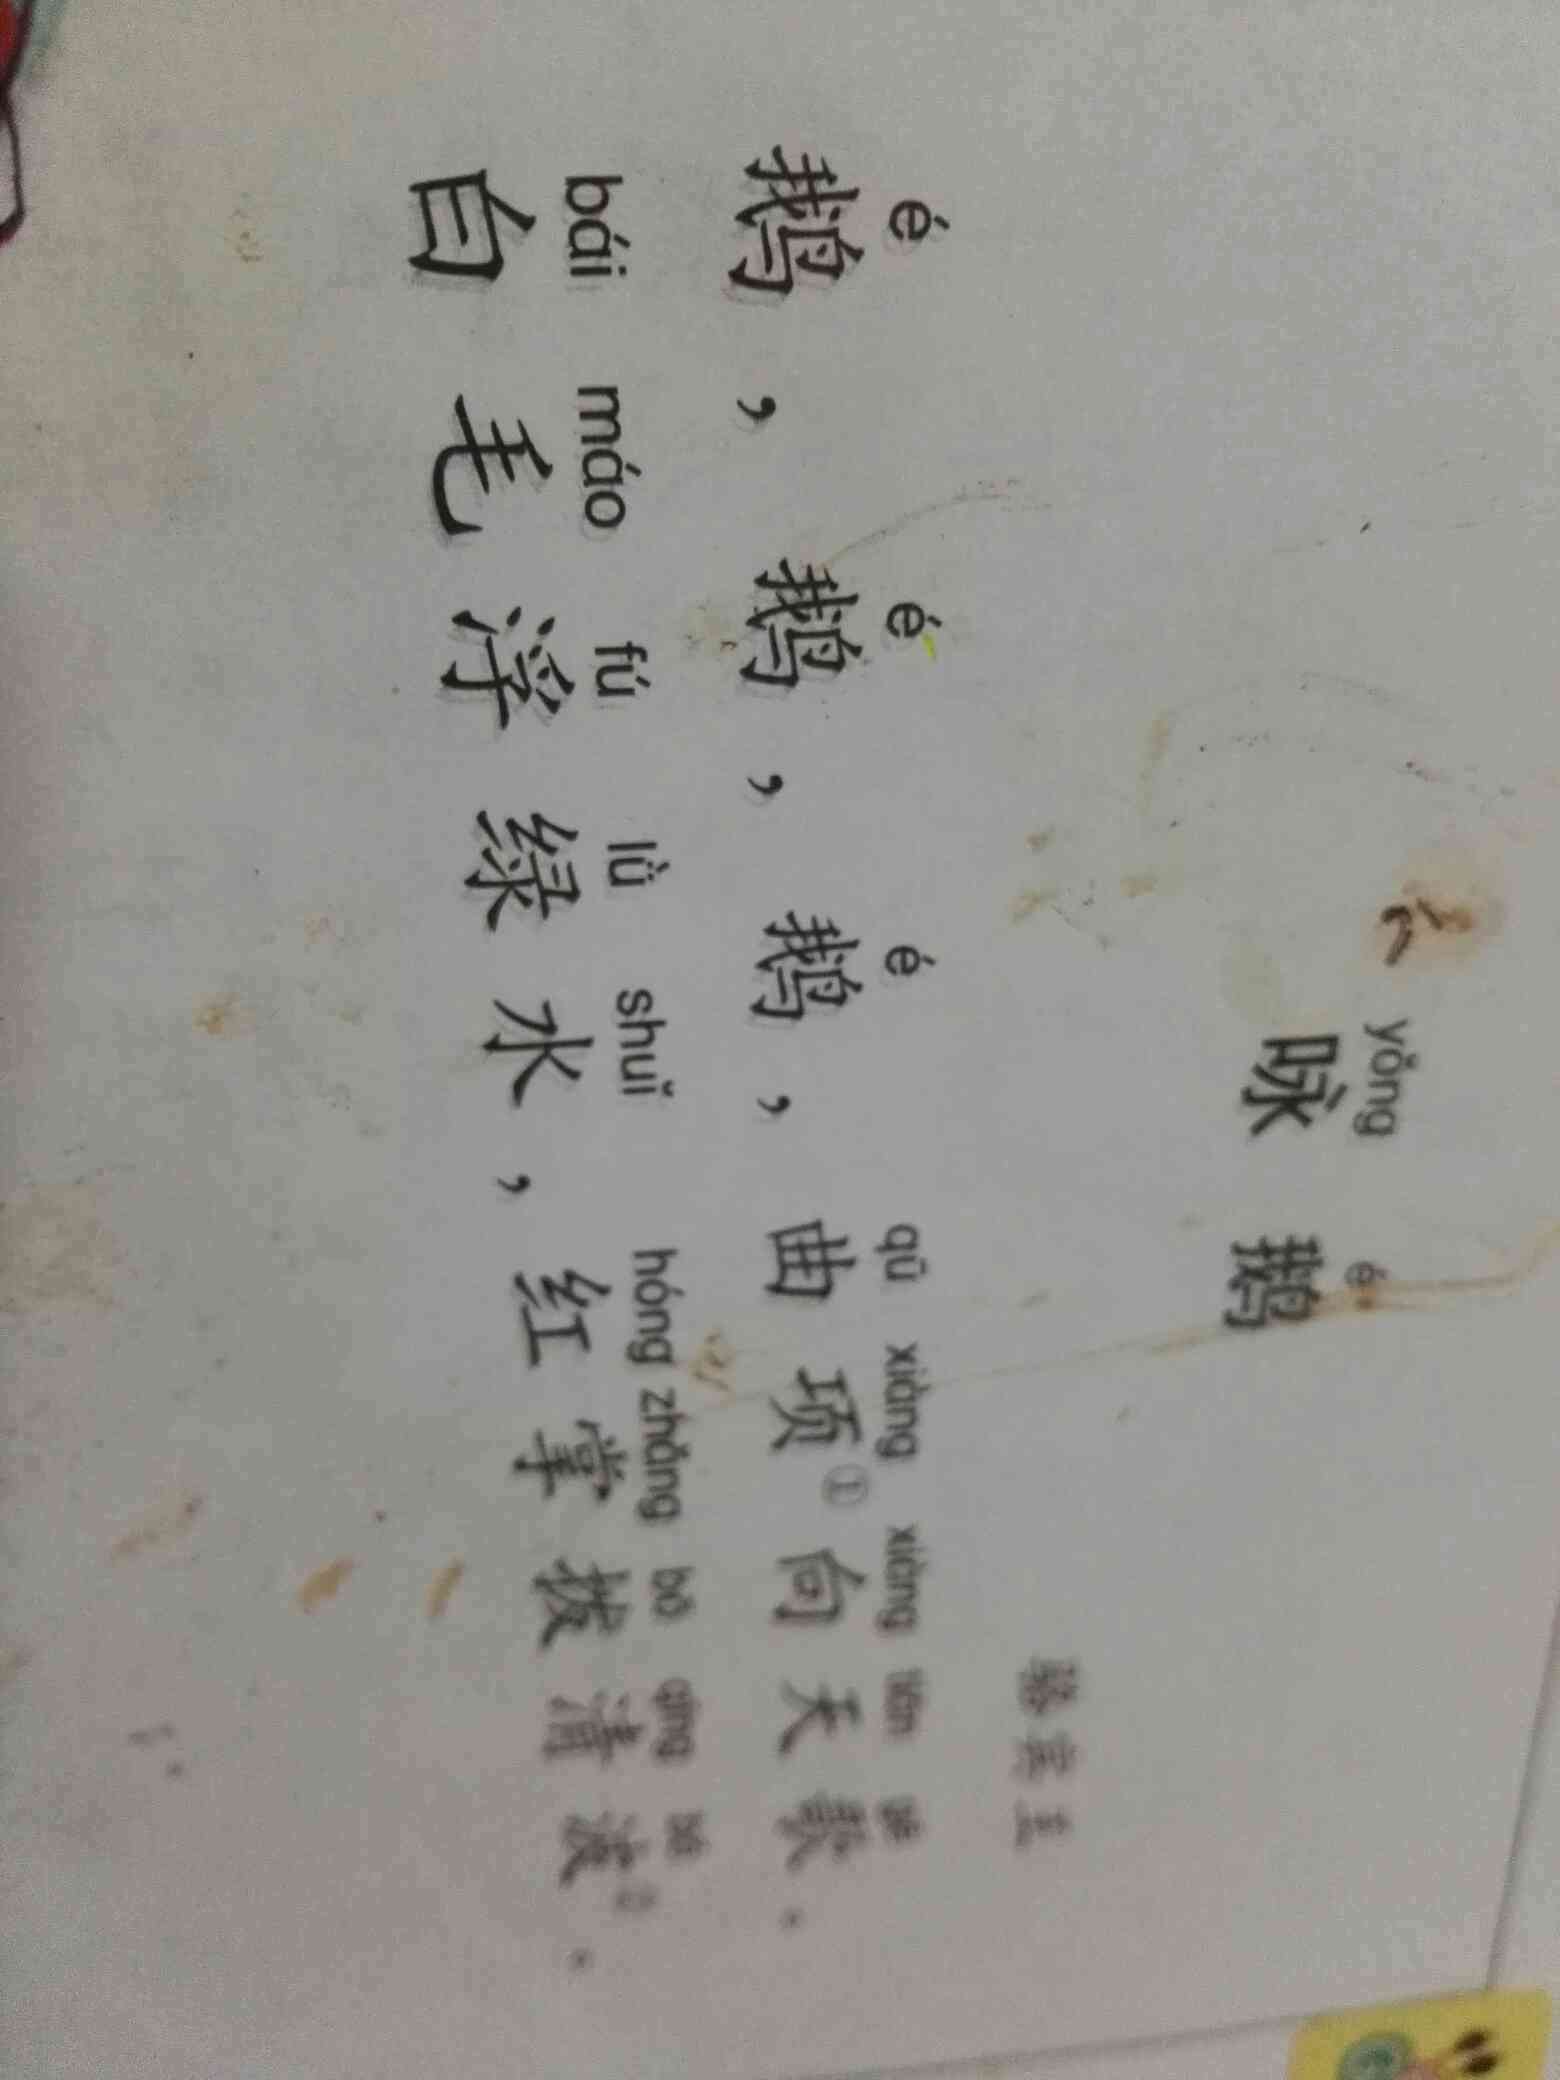 yǒng é
咏 鹅
骆宾王
é é é qū xiàng xiàng tiān gē
鹅，鹅，鹅，曲项①向天歌。
bái máo fú lǜ shuǐ hóng zhǎng bō qīng bō
白毛浮绿水，红掌拨清波②。